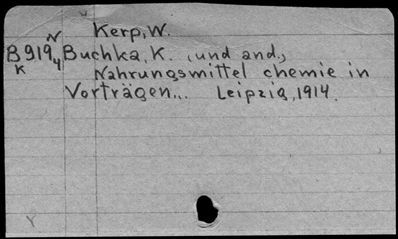 Kerp, W.
N
B919 Buchka, K. (und and.,
K 4
Nahrungsmittel chemie in
Vorträgen... Leipzig, 1914.
Y